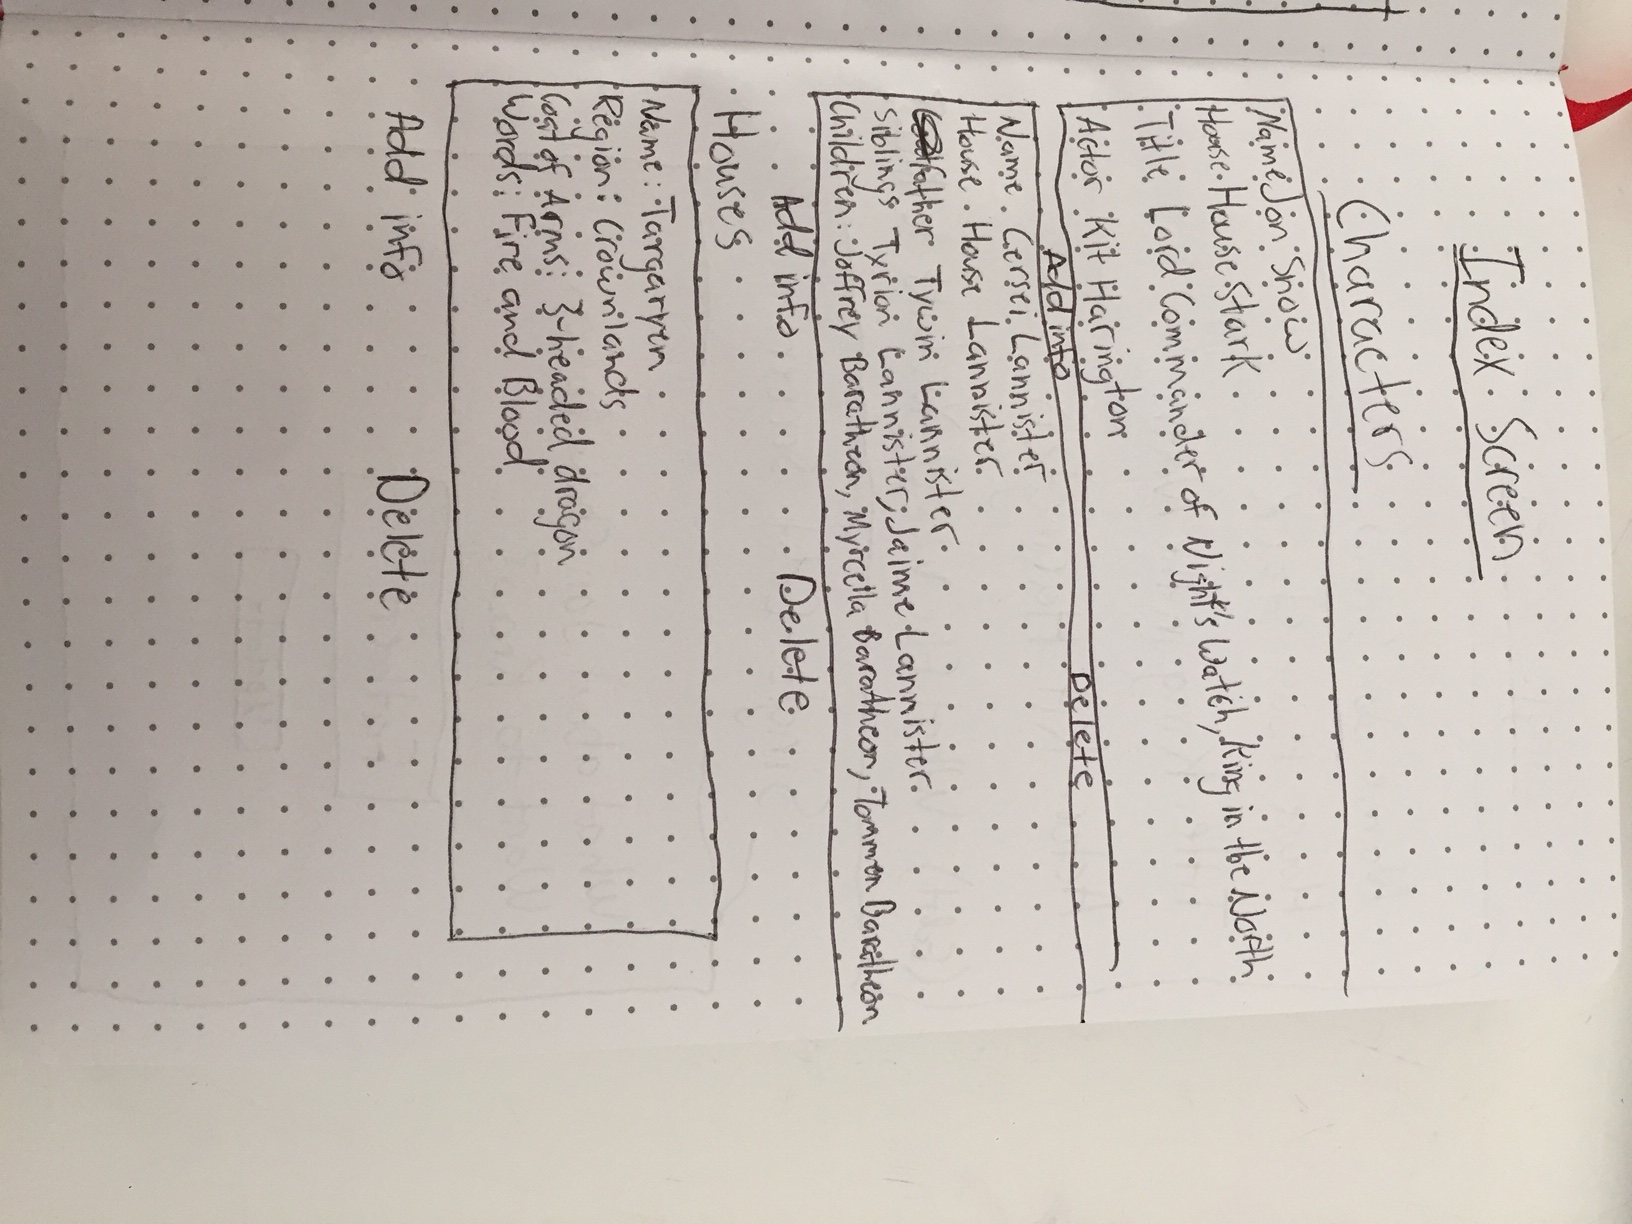 Index Screen
Characters
Name Jon Snow
House House Stark
Title Lord Commander of Night's Watch, King in the North
Actor Kit Harington
Add info Delete
Name. Cersei Lannister
House. House Lannister
Father Tywin Lannister
Siblings Tyrion Lannister, Jaime Lannister
Children: Joffrey Baratheon, Myrcella Baratheon, Tommen Baratheon
Add info Delete
Houses
Name: Targaryen
Region: Crownlands
Coat of Arms: 3-headed dragon
Words: Fire and Blood
Add info Delete